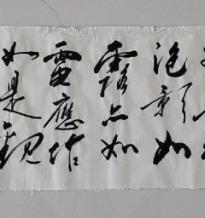 泡影如
露亦如
電應作
如是觀